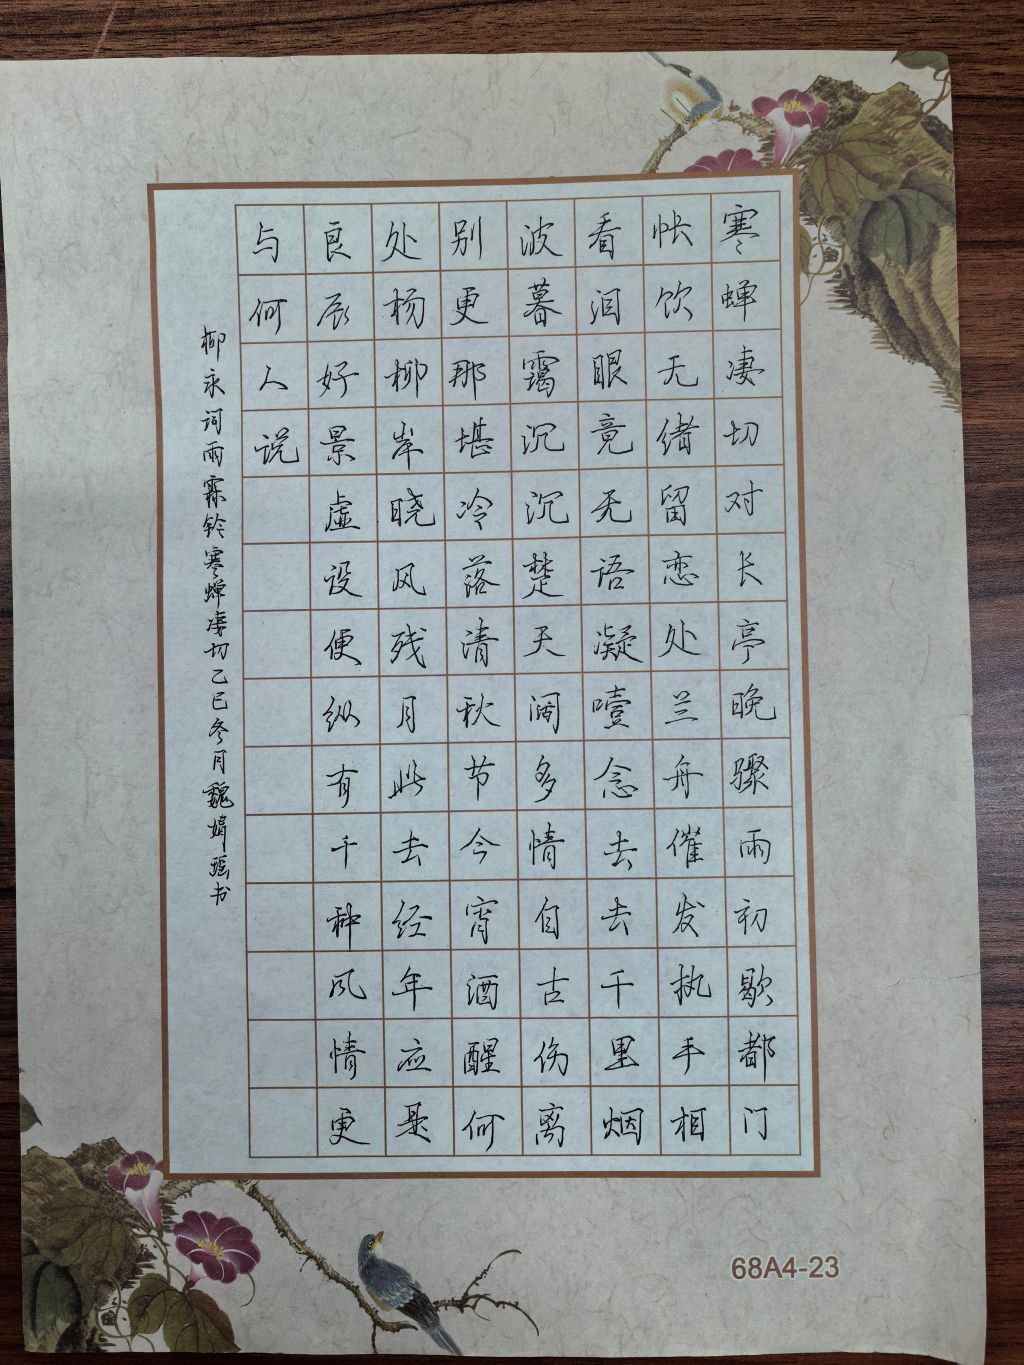 寒蝉凄切对长亭晚骤雨初歇都门
帐饮无绪留恋处兰舟催发执手相
看泪眼竟无语凝噎念去去千里烟
波暮霭沉沉楚天阔多情自古伤离
别更那堪冷落清秋节今宵酒醒何
处杨柳岸晓风残月此去经年应是
良辰好景虚设便纵有千种风情更
与何人说
柳永词雨霖铃寒蝉凄切乙巳冬月魏婧瑶书
68A4-23